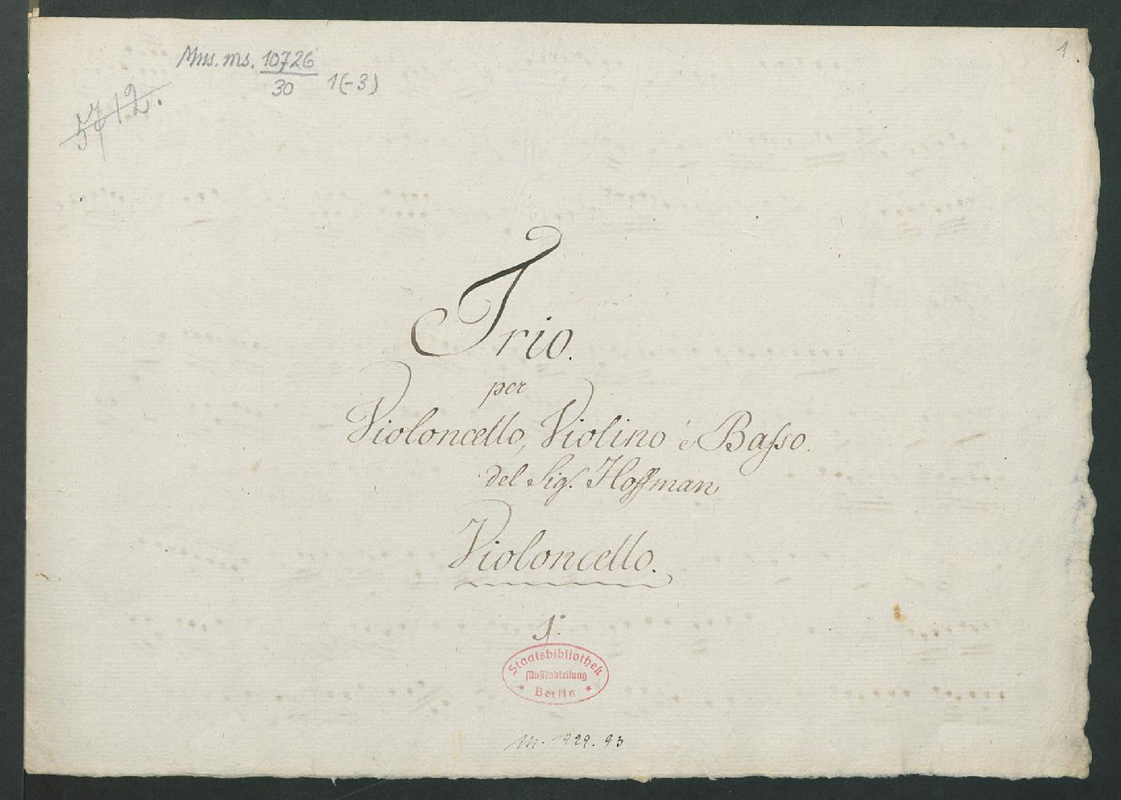 1.
Mus. ms. 10726
30
1(-3)
5712.
Trio.
per
Violoncello, Violino è Basso.
del Sigr. Hoffman
Violoncello.
Staatsbibliothek
Musikabteilung
Berlin
M. 1929. 93